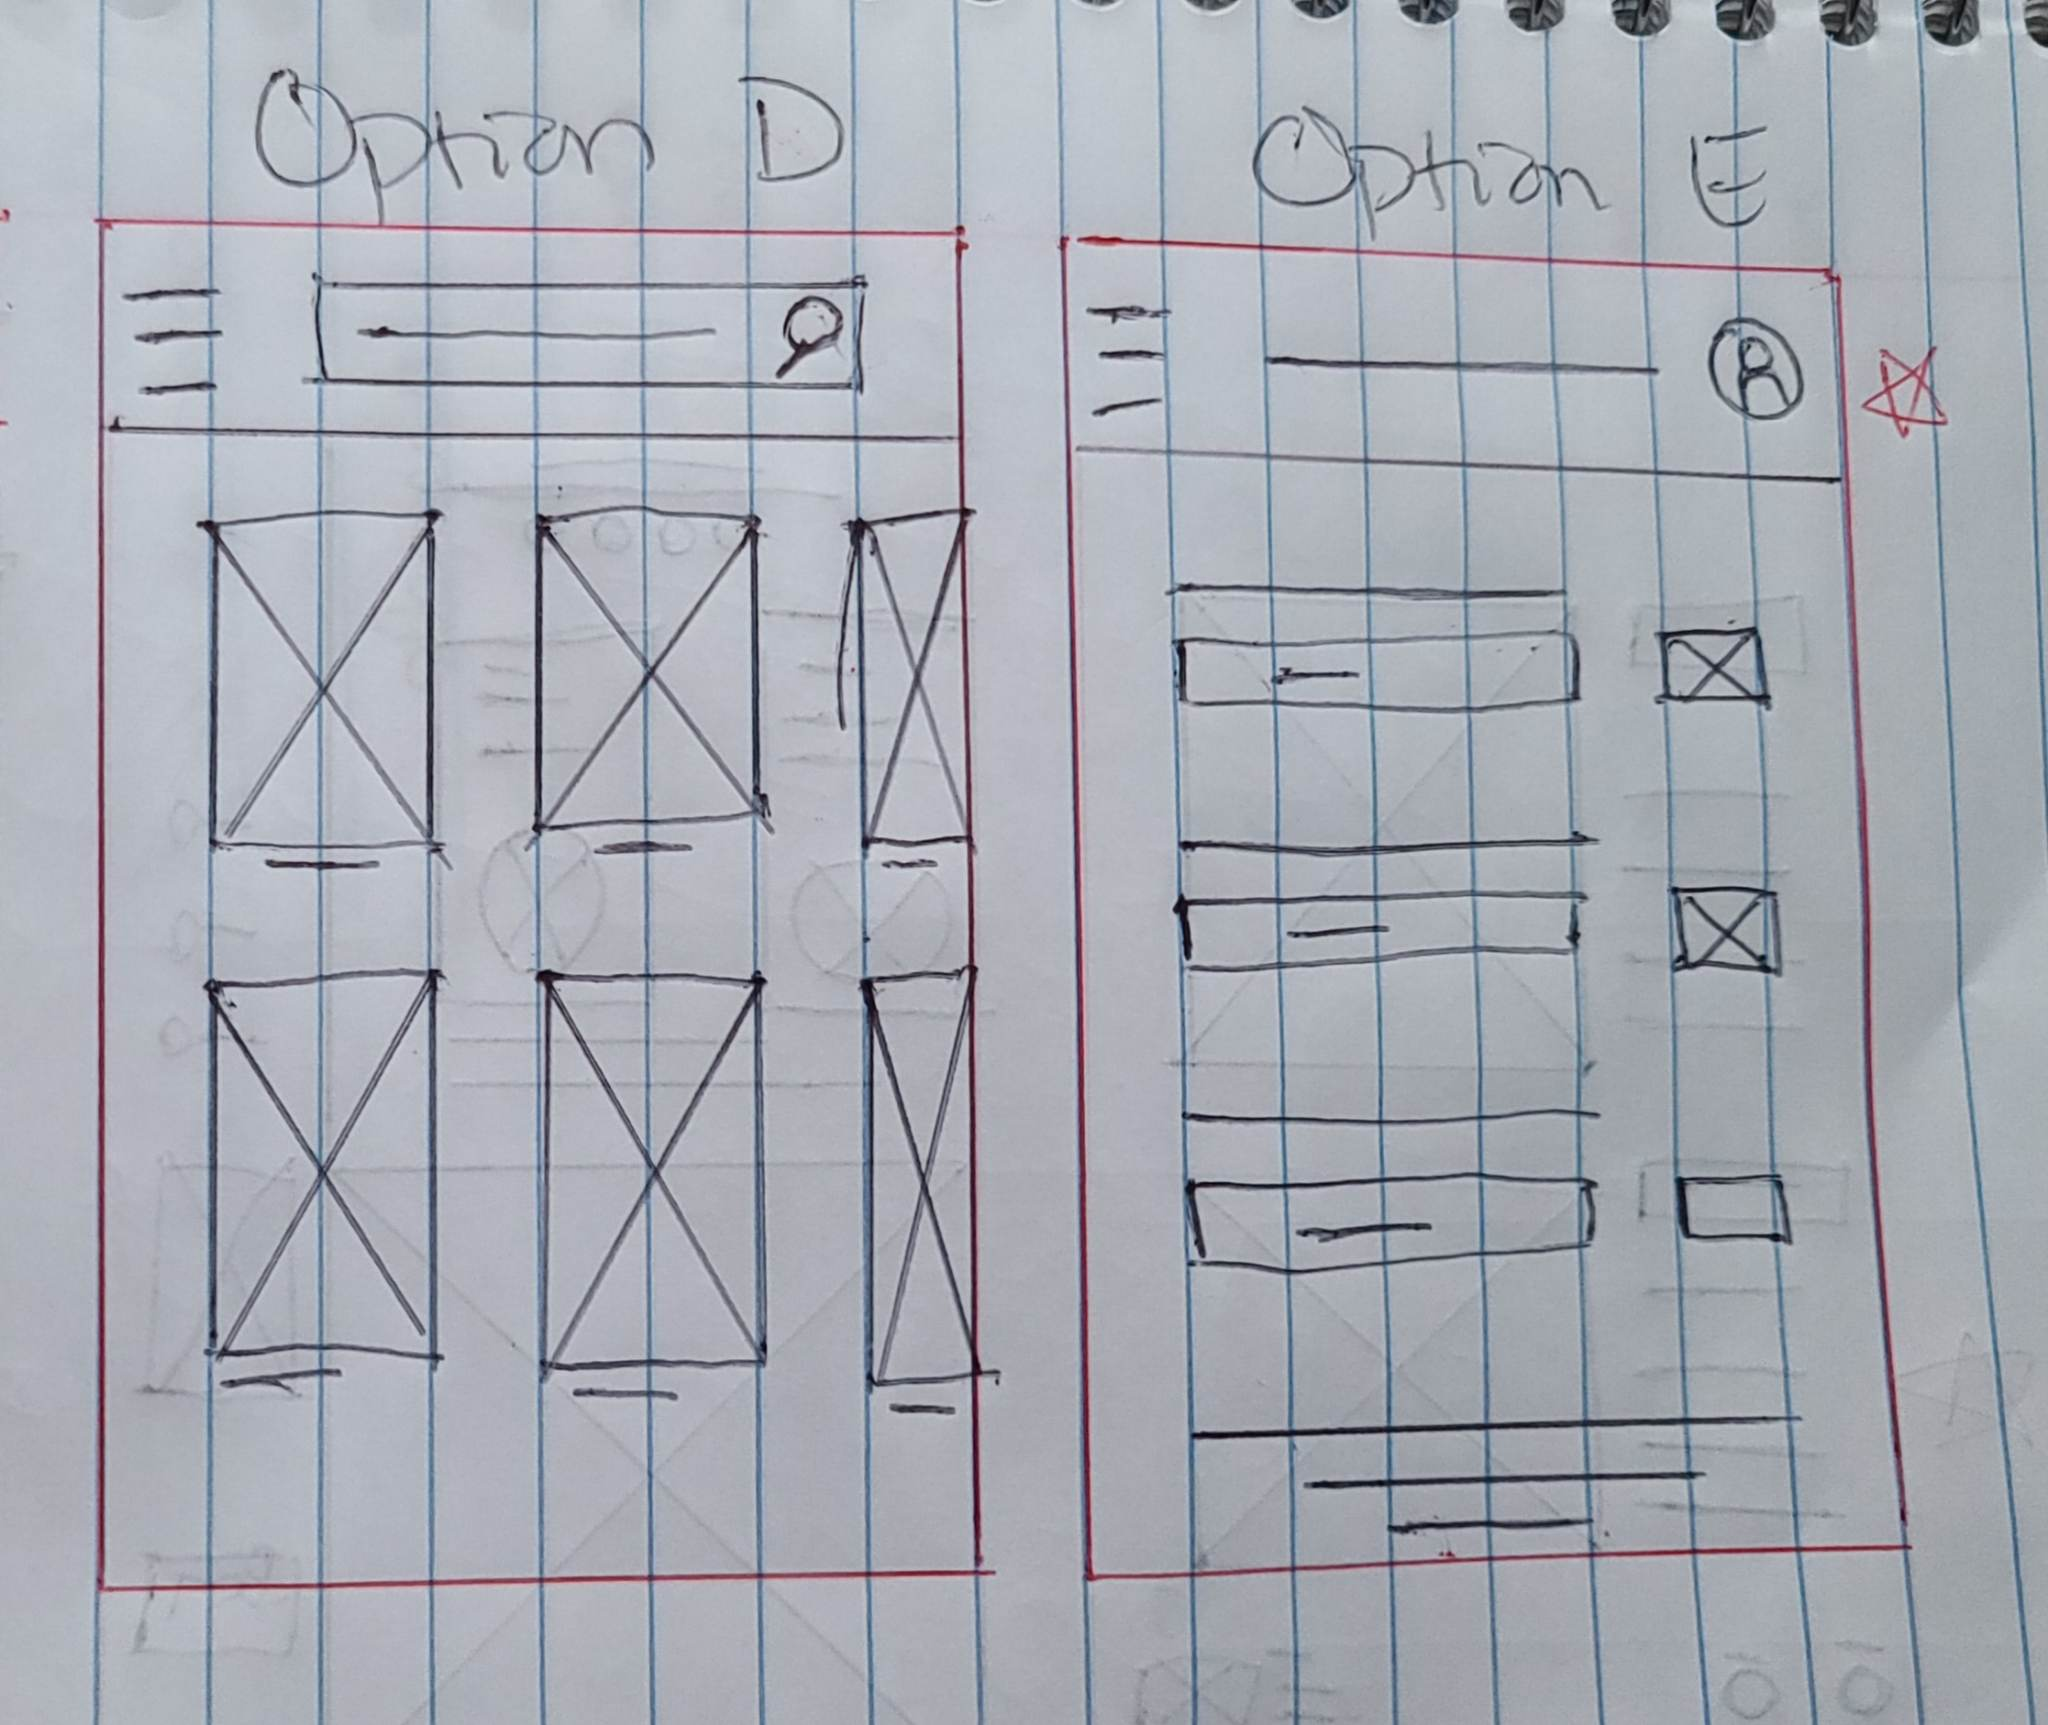 Option D
Option E